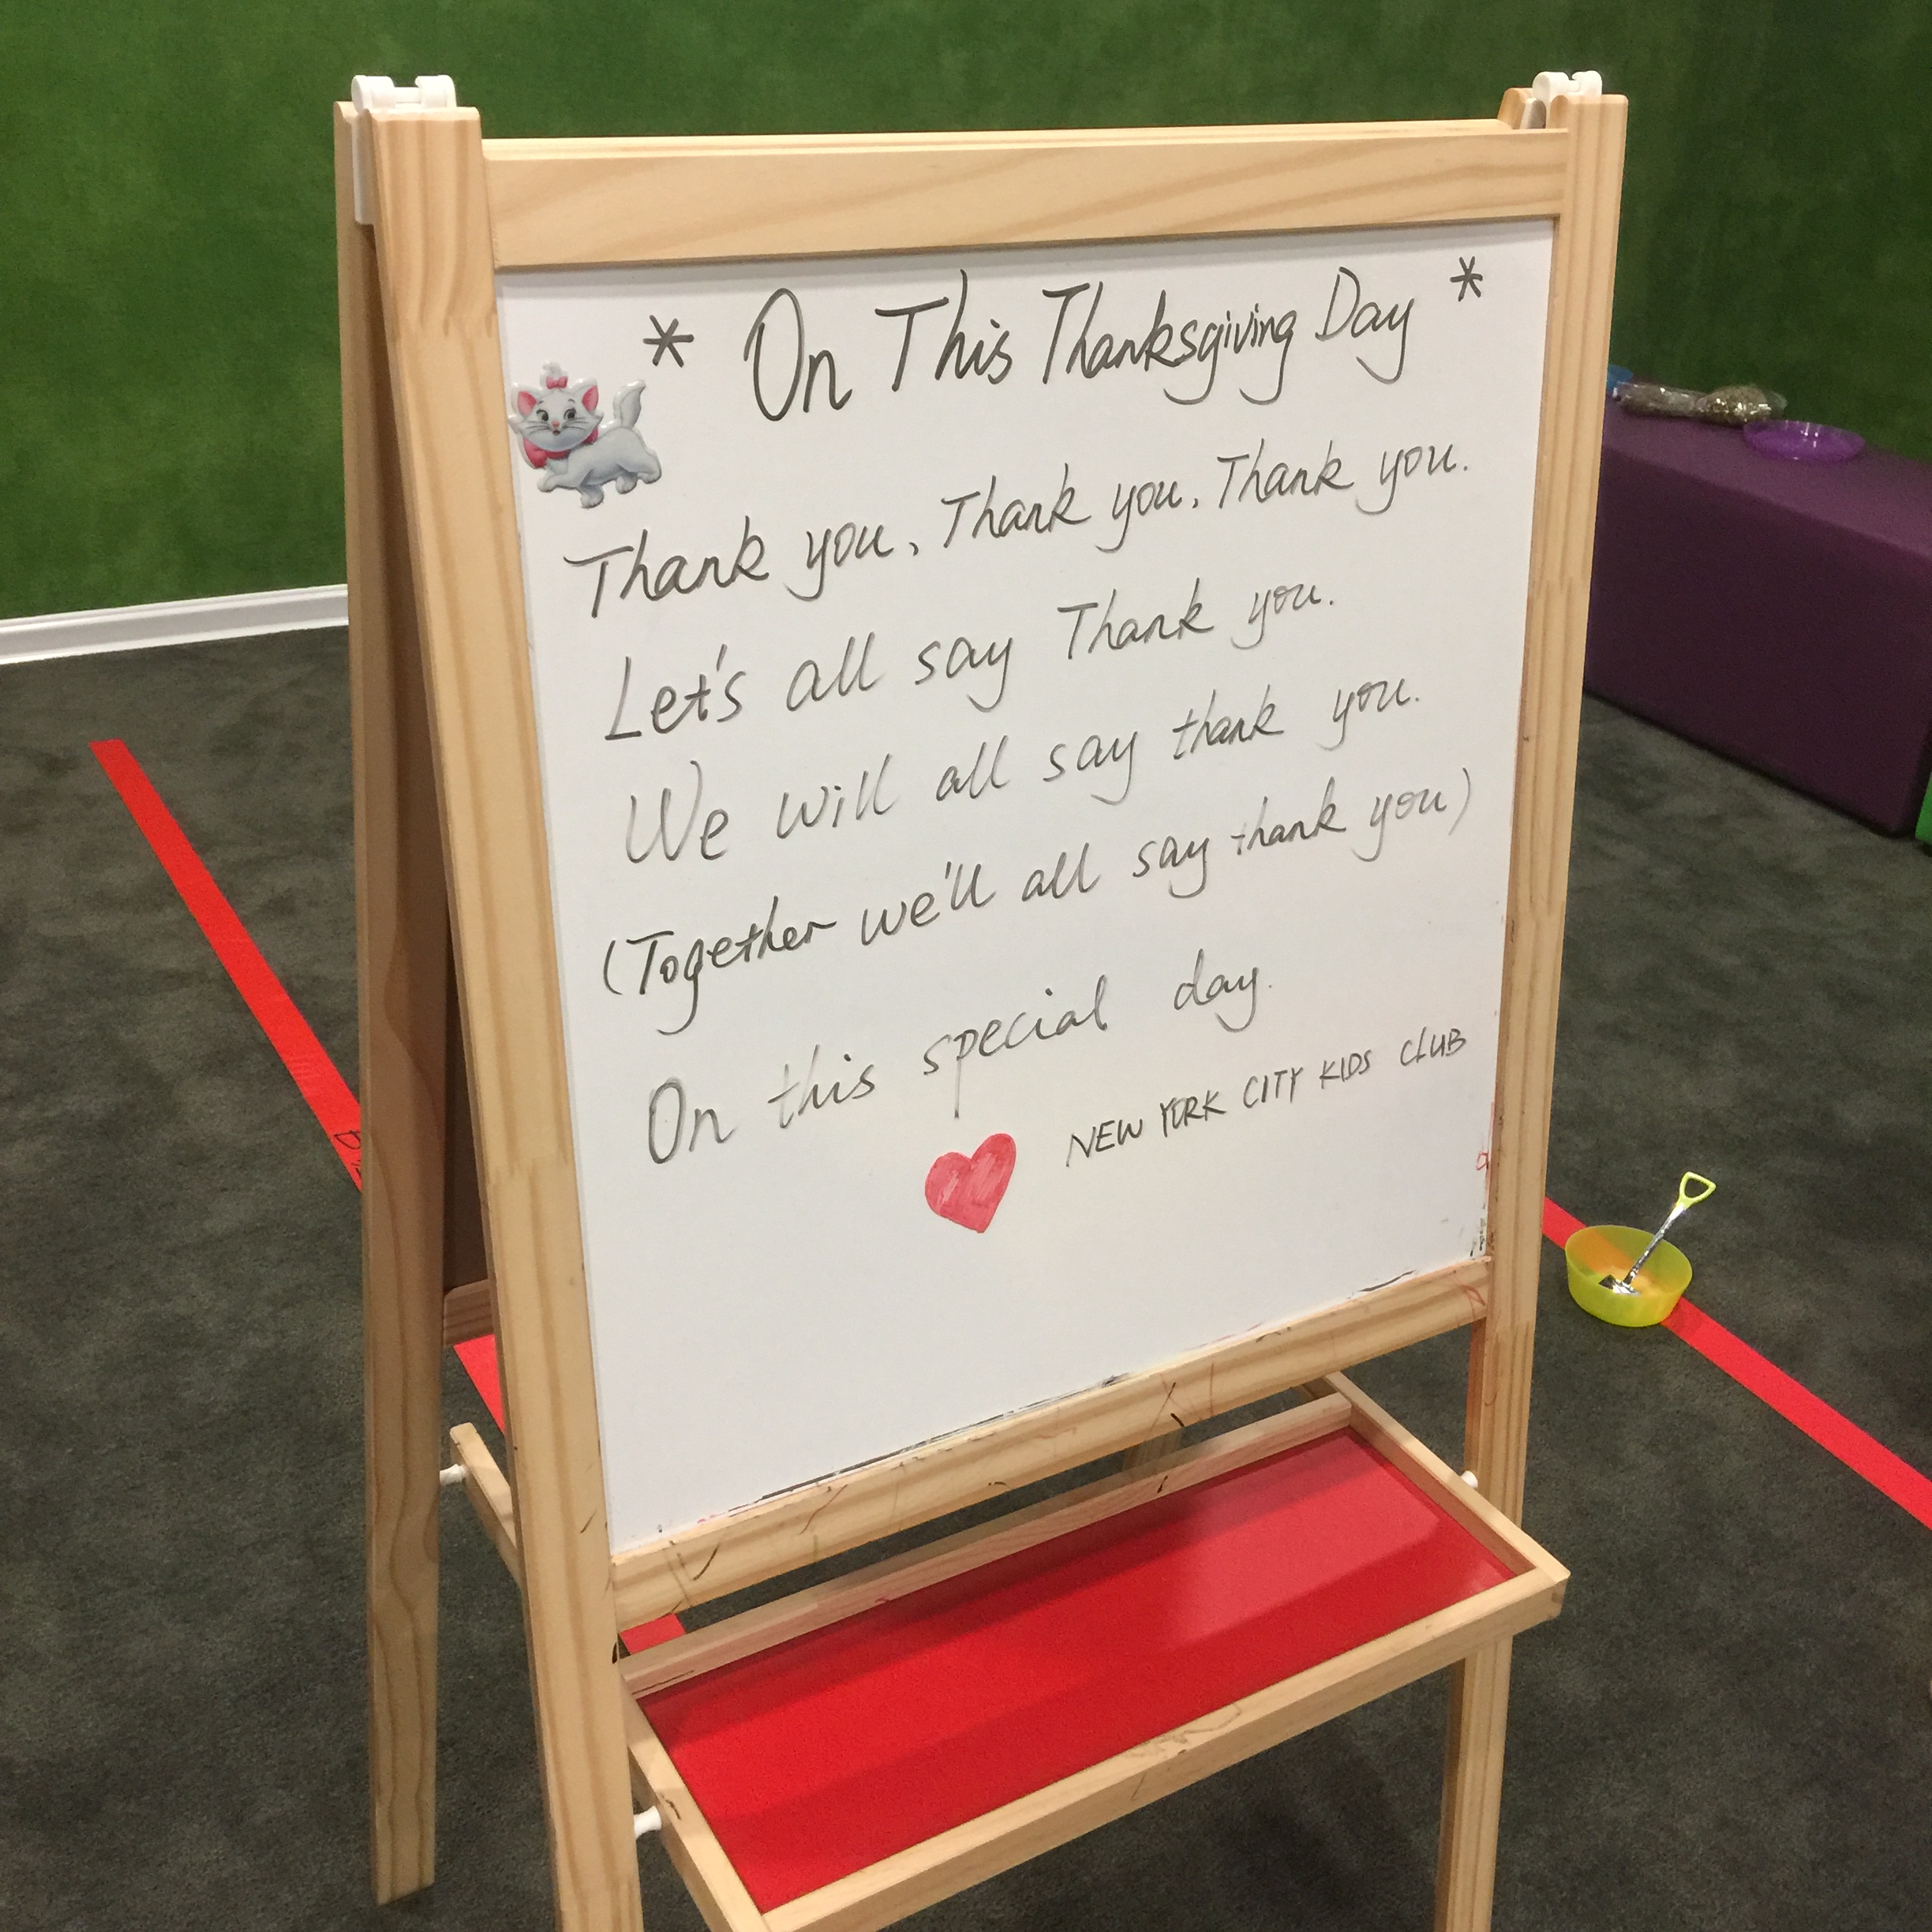 * On This Thanksgiving Day *
Thank you, Thank you, Thank you.
Let's all say Thank you.
We will all say thank you.
(Together we'll all say thank you)
On this special day.
NEW YORK CITY KIDS CLUB